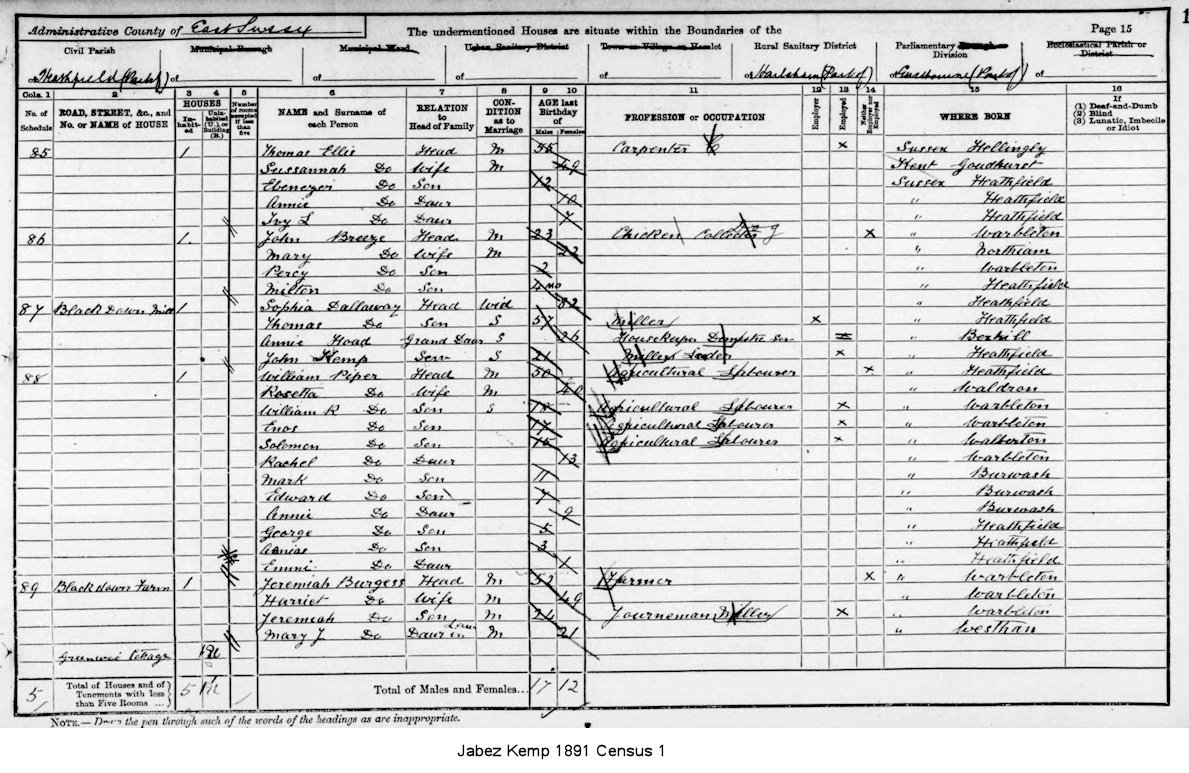 Administrative County of East Sussex
The undermentioned Houses are situate within the Boundaries of the
Page 15
Civil Parish Municipal Borough Municipal Ward Urban Sanitary District Town or Village or Hamlet Rural Sanitary District Parliamentary Borough or Division Ecclesiastical Parish or District
of Heathfield (Part of) of of of of of Hailsham (Part of) of Eastbourne (Part of) of
Cols. 1 2 3 4 5 6 7 8 9 10 11 12 13 14 15 16
No. of Schedule ROAD, STREET, &c., and No. or NAME of HOUSE HOUSES Inhabited Uninhabited (U.), or Building (B.) Number of rooms occupied if less than five NAME and Surname of each Person RELATION to Head of Family CONDITION as to Marriage AGE last Birthday of Males Females PROFESSION or OCCUPATION Employer Employed Neither Employer nor Employed WHERE BORN If (1) Deaf-and-Dumb (2) Blind (3) Lunatic, Imbecile or Idiot
85 1 Thomas Ellis Head M 55 Carpenter x Sussex Hellingly
Sussannah Do Wife M 49 Kent Goudhurst
Ebenezer Do Son 12 Sussex Heathfield
Annie Do Daur 10 " Heathfield
Ivy L Do Daur 7 " Heathfield
86 1 John Breeze Head M 23 Chicken x " Warbleton
Mary Do Wife M 22 " Northiam
Percy Do Son 2 " Warbleton
Milton Do Son 4 mo " Heathfield
87 Black Down Mill 1 Sophia Dallaway Head Wid 82 " Heathfield
Thomas Do Son S 57 Miller x " Heathfield
Annie Hoad Grand Daur S 26 Housekeeper Domestic Ser " Bexhill
John Kemp Serv S 21 Millers x " Heathfield
88 1 William Piper Head M 50 Agricultural Labourer x " Heathfield
Rosetta Do Wife M 40 " Waldron
William R Do Son S 18 Agricultural Labourer x " Warbleton
Enos Do Son 17 Agricultural Labourer x " Warbleton
Solomon Do Son 15 Agricultural Labourer x " Walberton
Rachel Do Daur 13 " Warbleton
Mark Do Son 11 " Burwash
Edward Do Son 7 " Burwash
Annie Do Daur 9 " Burwash
George Do Son 5 " Heathfield
Do Son 3 " Heathfield
Emmi Do Daur 1 " Heathfield
89 Blackdown Farm 1 Jeremiah Burgess Head M 52 Farmer x " Warbleton
Harriet Do Wife M 49 " Warbleton
Jeremiah Do Son M 24 Journeman Miller x " Warbleton
Mary J Do Daur in Law M 21 " Westhan
Cottage
5 Total of Houses and of Tenements with less than Five Rooms ... 5 Total of Males and Females... 17 12
NOTE.— Draw the pen through such of the words of the headings as are inappropriate.
Jabez Kemp 1891 Census 1